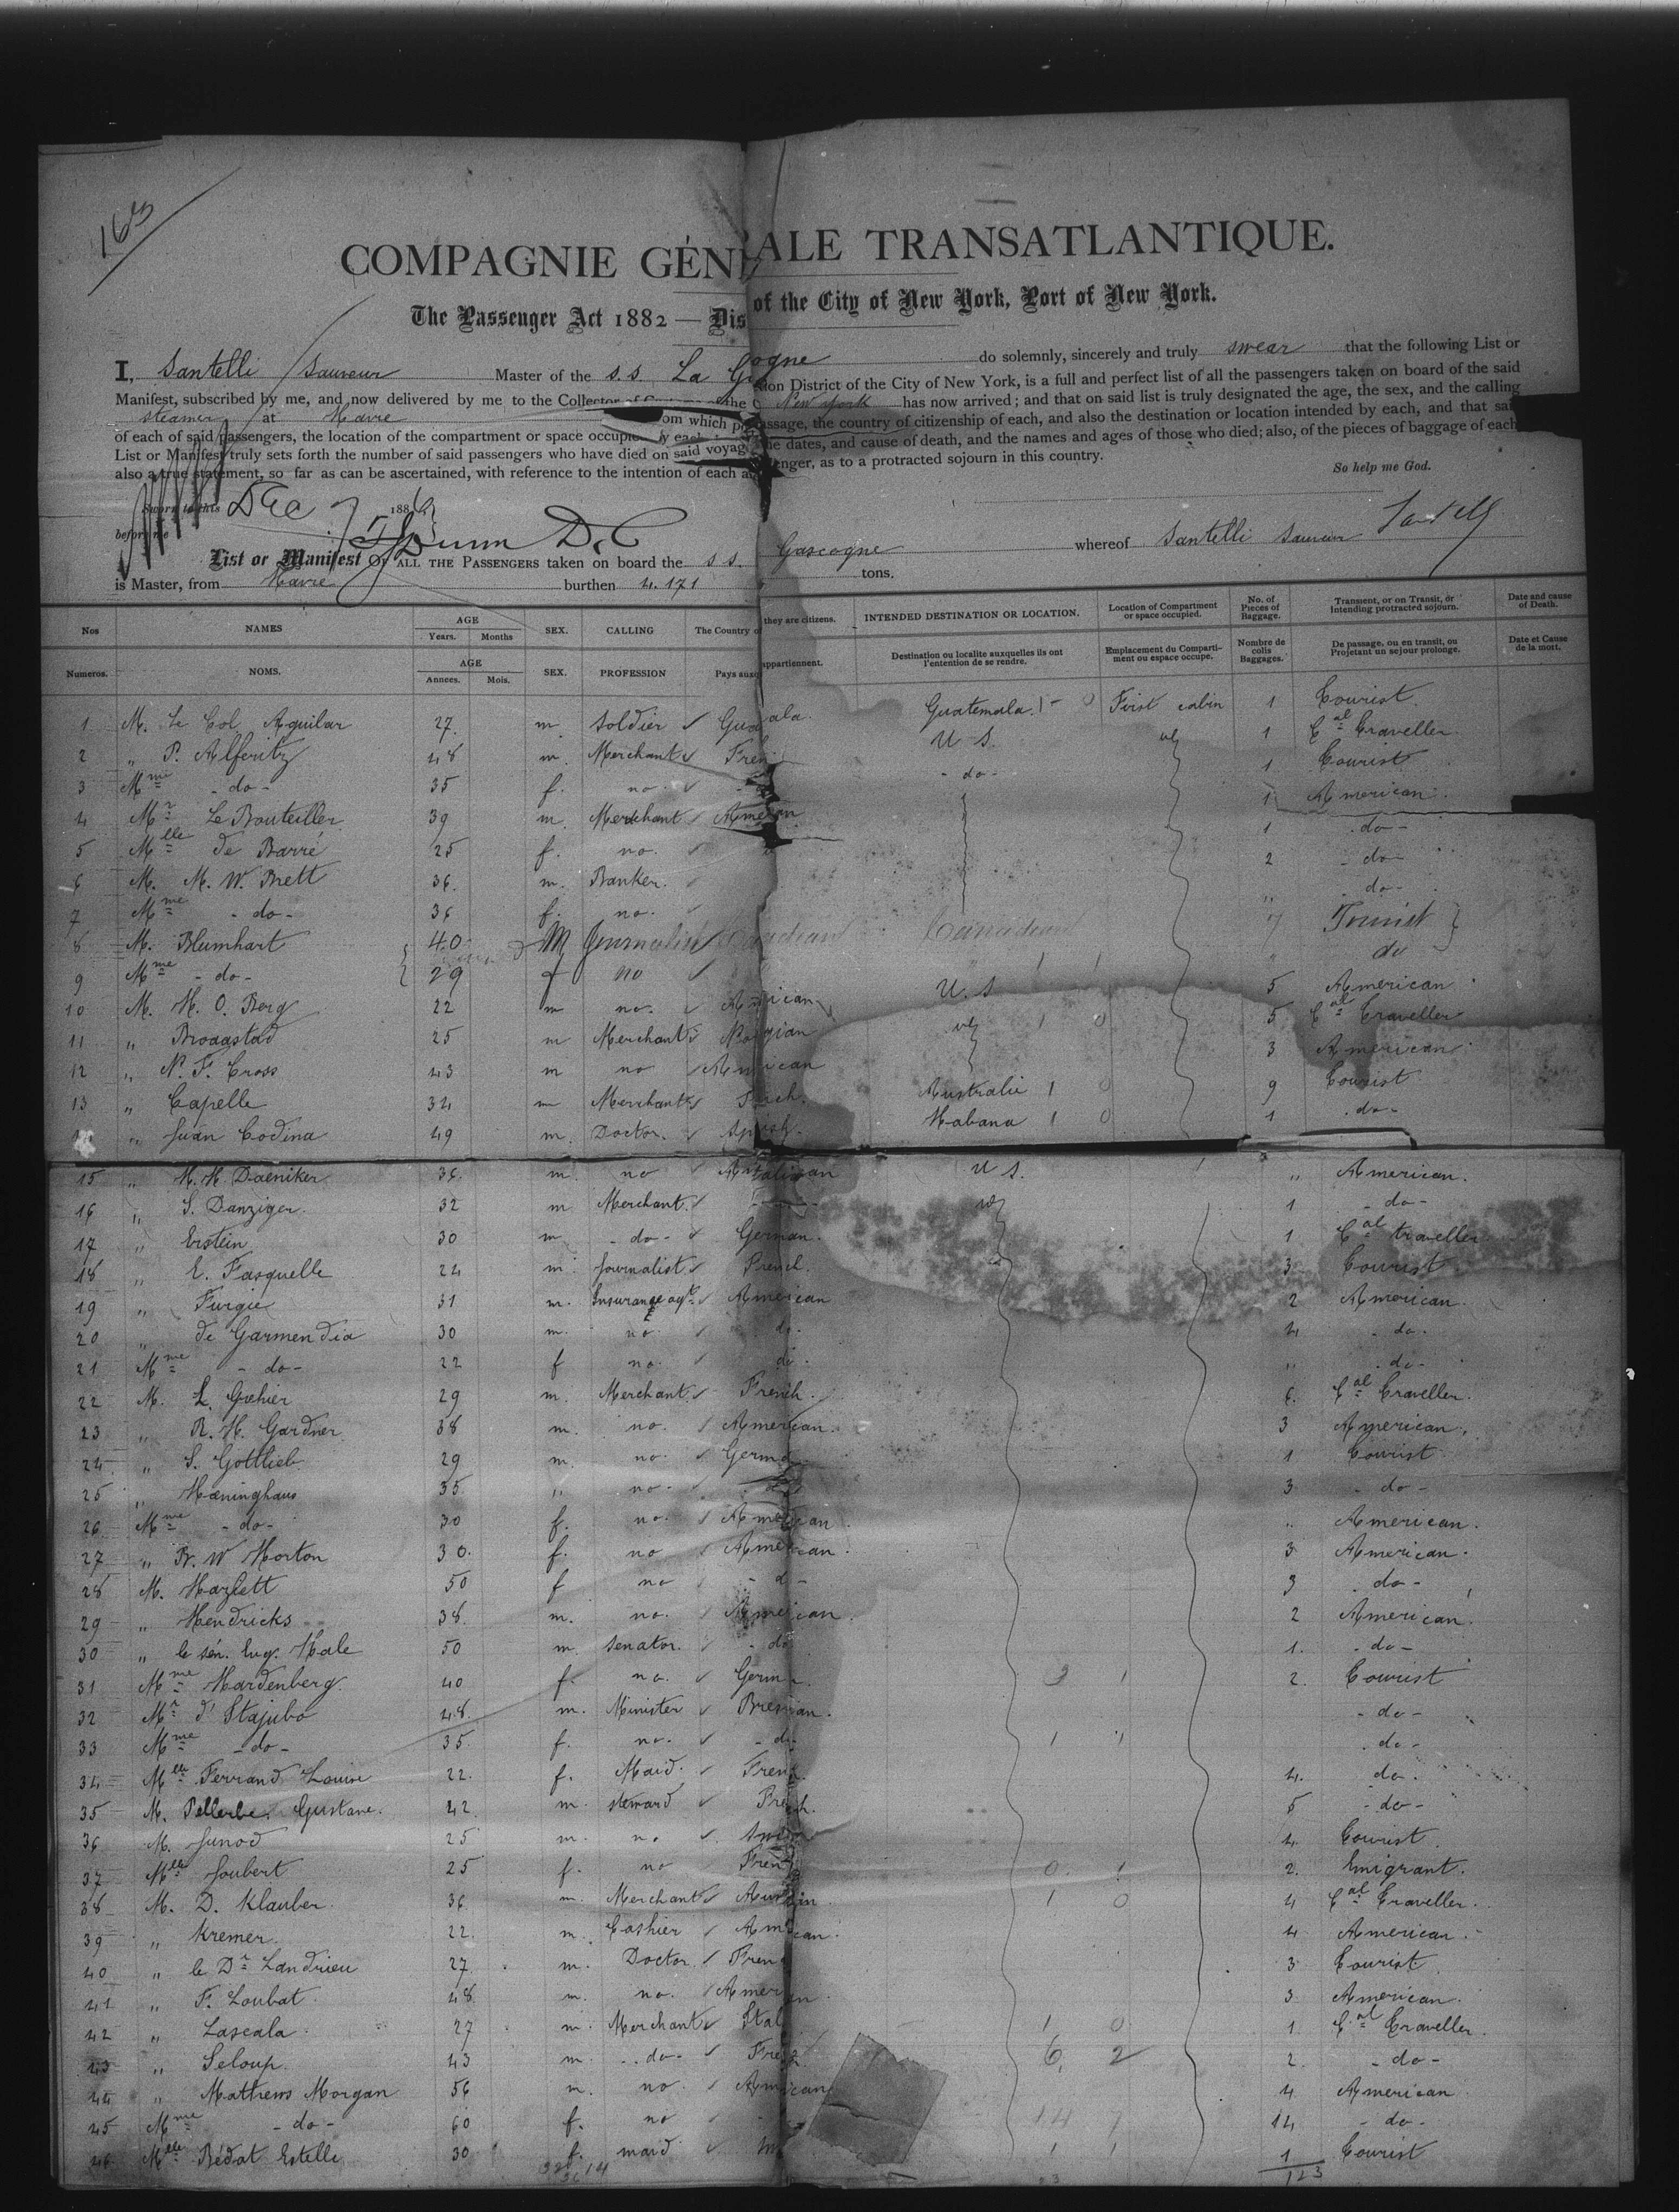 163
COMPAGNIE GÉNÉRALE TRANSATLANTIQUE.
The Passenger Act 1882 — Dis of the City of New York, Port of New York.
I, Santelli Sauveur Master of the s.s La Gascogne do solemnly, sincerely and truly swear that the following List or
Manifest, subscribed by me, and now delivered by me to the Collector of Customs of the tion District of the City of New York, is a full and perfect list of all the passengers taken on board of the said
steamer at Havre om which New York has now arrived; and that on said list is truly designated the age, the sex, and the calling
of each of said passengers, the location of the compartment or space occupied by each passage, the country of citizenship of each, and also the destination or location intended by each, and that said
List or Manifest truly sets forth the number of said passengers who have died on said voyage the dates, and cause of death, and the names and ages of those who died; also, of the pieces of baggage of each
also a true statement, so far as can be ascertained, with reference to the intention of each enger, as to a protracted sojourn in this country.
So help me God.
Sworn to this Dec 7 188
before me Dunn D.C
List or Manifest OF ALL THE PASSENGERS taken on board the s s. Gascogne whereof Santelli Sauveur Santelli
is Master, from Havre burthen 4.171 tons.
Nos NAMES AGE Years. Months SEX. CALLING The Country of they are citizens. INTENDED DESTINATION OR LOCATION. Location of Compartment or space occupied. No. of Pieces of Baggage. Transient, or on Transit, or Intending protracted sojourn. Date and cause of Death.
Numeros. NOMS. AGE Annees. Mois. SEX. PROFESSION Pays auxq appartiennent. Destination ou localite auxquelles ils ont l'entention de se rendre. Emplacement du Comparti- ment ou espace occupe. Nombre de colis Baggages. De passage, ou en transit, ou Projetant un sejour prolonge. Date et Cause de la mort.
1 M. Le Col. Aguilar 27. m. soldier Guatemala. Guatemala. 1 - 0 First cabin 1 Tourist
2 " P. Alferitz 48 m. Merchant French U S. 1 Cal Traveller.
3 Mme - do - 35 f. no. - do - 1 Tourist
4 Mr Le Bouteiller 39 m. Merchant American 1 American.
5 Mlle de Barré 25 f. no. 1 do -
6 M. M. W. Brett 36. m. Banker. 2 - do -
7 Mme - do - 36 f. no. " - do -
8 M. Blumhart 40 M Journalist Canadian Canadian 7 Tourist
9 Mme - do - 29 f no " do
10 M. H. O. Berg 22 m no. American U. S 5 American
11 " Broagstad 25 m Merchant Norgian 1 0 5 Cal Traveller
12 " N. F. Cross 43 m no American 3 American
13 " Capelle 34 m Merchant French. Australie 1 0 9 Tourist
" Juan Codina 49 m. Doctor. Spash. Habana 1 0 1 . do -
15 " H. H. Daeniker 36. m. no U S. " American.
16 " S. Danziger. 32 m Merchant. 1 - do -
17 " Erstein 30 m - do - German. 1 Cal traveller
18 " E. Fasquelle 24 m. Journalist French. 3 Tourist
19 " Furgie 31 m. Insurance agt. American 2 American.
20 " de Garmendia 30 m. no. do. 4 - do.
21 Mme - do - 22 f no. do. " . do -
22 M. L. Gæhier 29 m. Merchant. French. 6. Cal Traveller.
23 " R. H. Gardner 38 m. no. American. 3 American.
24 " S. Gottlieb 29 m. no. German 1 Tourist
25 " Hæninghaus 35. " no. 3 - do -
26 Mme - do - 30 f. no. American. " American.
27 " B. W Horton 30. f. no American. 3 American.
28 M. Hazlett 50 f no - d - 3 . do -
29 " Hendricks 38. m. no. American. 2 American.
30 " le sén. Eug. Hale 50 m. Senator. - do 1. - do -
31 Mme Hardenberg. 40 f. no. Germ 3 1 2. Tourist
32 Mr d'Itajubo 48. m. Minister Bresilian. - do -
33 Mme - do - 35. f. no. - do - 1 " . do -
34 Mlle Ferrand Louise 22. f. Maid. French. 4. do.
35 M. Pellerbe Gustave. 42. m. steward French. 5 - do -
36 M. Junod 25 m. no 4. Tourist.
37 Mlle Joubert 25 f. no French 0. 1 2. Emigrant.
38 M. D. Klauber. 36 m. Merchant 1 0 4 Cal Traveller.
39 " Kremer. 22. m. Cashier American. 4 American.
40 " le Dr Landrieu 27. m. Doctor. French 3 Tourist.
41 " F. Loubat. 48. m. no. American. 3 American.
42 " Lascala 27 m. Merchant Ital 1 0 1. Cal Traveller.
43 " Seloup. 43 m. - do - French 6. 2 2. - do -
44 " Mathews Morgan 56 m. no. American 4 American
45 Mme - do - 60 f. no 14 7 14 - do -
46 Mlle Bédat Estelle 30 f. maid 1 1 1 Tourist
123